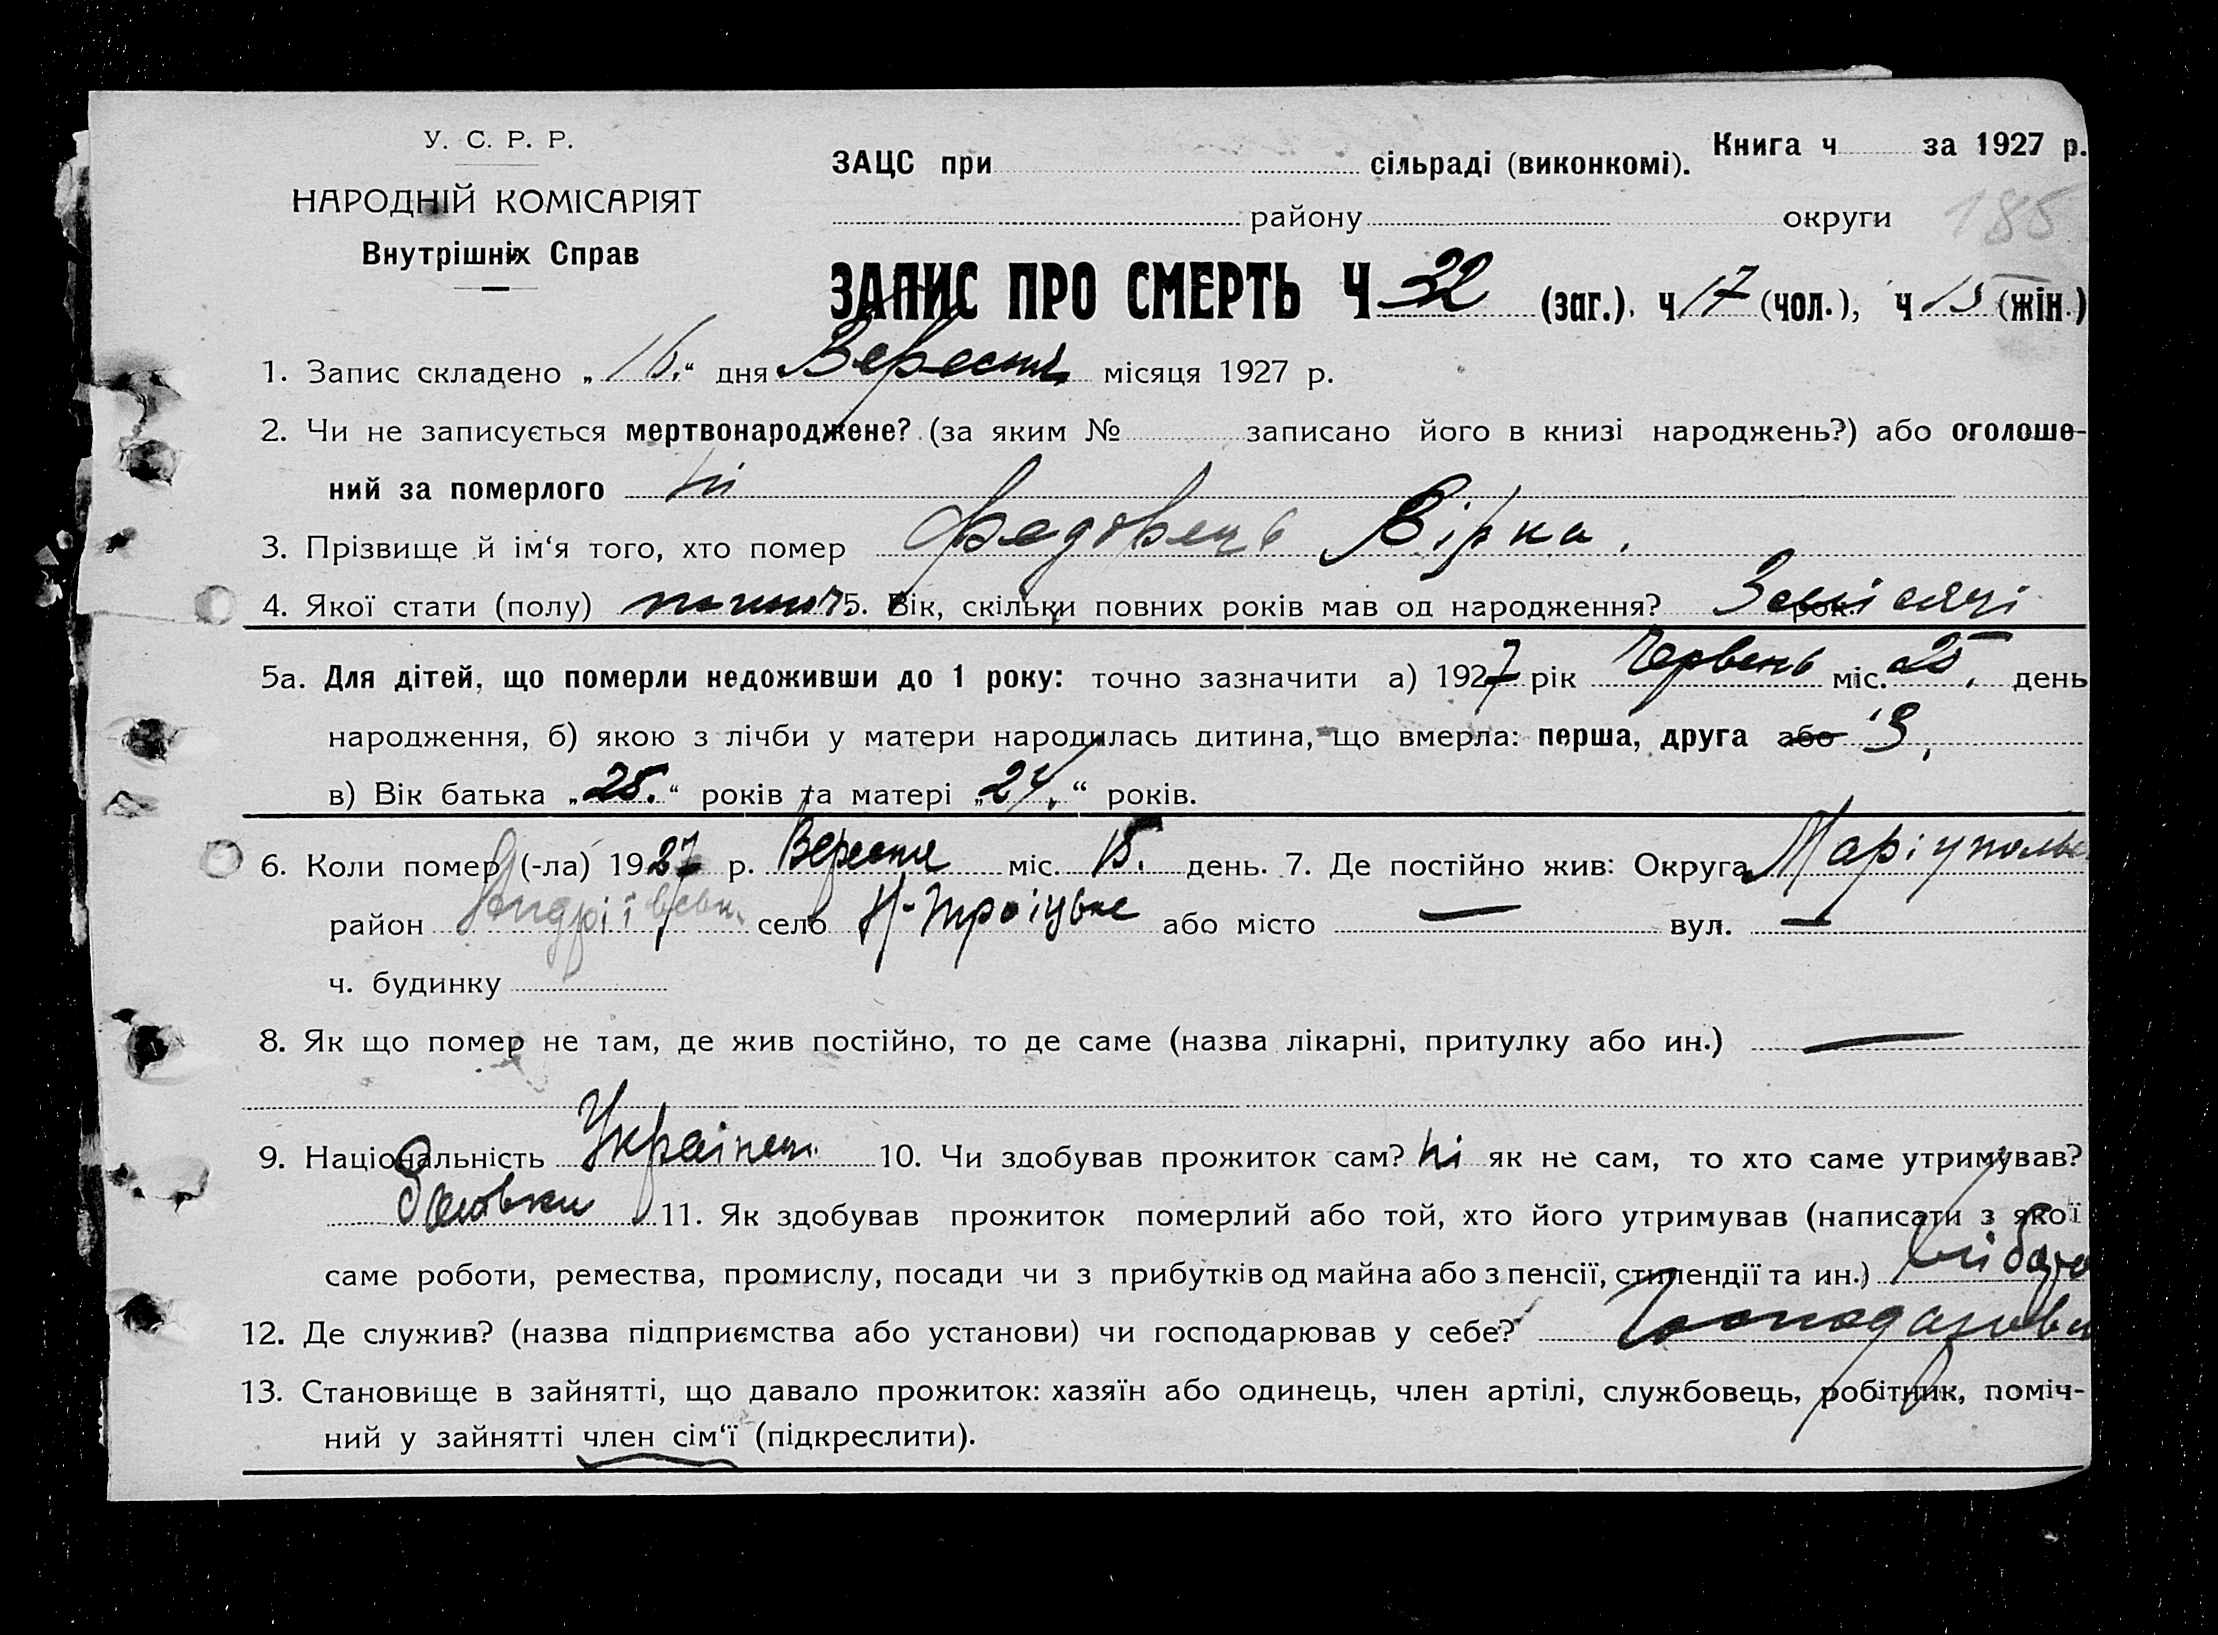 У. С. Р. Р.
НАРОДНІЙ КОМІСАРІЯТ
Внутрішніх Справ
Книга ч за 1927 р.
ЗАЦС при сільраді (виконкомі).
району округи 185
ЗАПИС ПРО СМЕРТЬ Ч 32 (заг.). ч 17 (чол.), ч 15 (жін.)
1. Запис складено „16." дня Вересня місяця 1927 р.
2. Чи не записується мертвонароджене? (за яким № записано його в книзі народжень?) або оголоше-
ний за померлого Ні
3. Прізвище й ім'я того, хто помер Федорець Вірка.
4. Якої стати (полу) 5. Вік, скільки повних років мав од народження? 3 місяці рок.
5а. Для дітей, що померли недоживши до 1 року: точно зазначити а) 1927 рік Червень міс. 25. день
народження, б) якою з лічби у матери народилась дитина, що вмерла: перша, друга або 3.
в) Вік батька „25." років та матері „24." років.
6. Коли помер (-ла) 1927 р. Вересня міс. 15. день. 7. Де постійно жив: Округа Маріупольс
район Андріївськ. село Н-Троіцьке або місто — вул. —
ч. будинку
8. Як що помер не там, де жив постійно, то де саме (назва лікарні, притулку або ин.) —
9. Національність Українець 10. Чи здобував прожиток сам? Ні як не сам, то хто саме утримував?
Батьки 11. Як здобував прожиток померлий або той, хто його утримував (написати з якої
саме роботи, ремества, промислу, посади чи з прибутків од майна або з пенсії, стипендії та ин.)
12. Де служив? (назва підприємства або установи) чи господарював у себе? Господарював
13. Становище в зайнятті, що давало прожиток: хазяїн або одинець, член артілі, службовець, робітник, поміч-
ний у зайнятті член сім'ї (підкреслити).